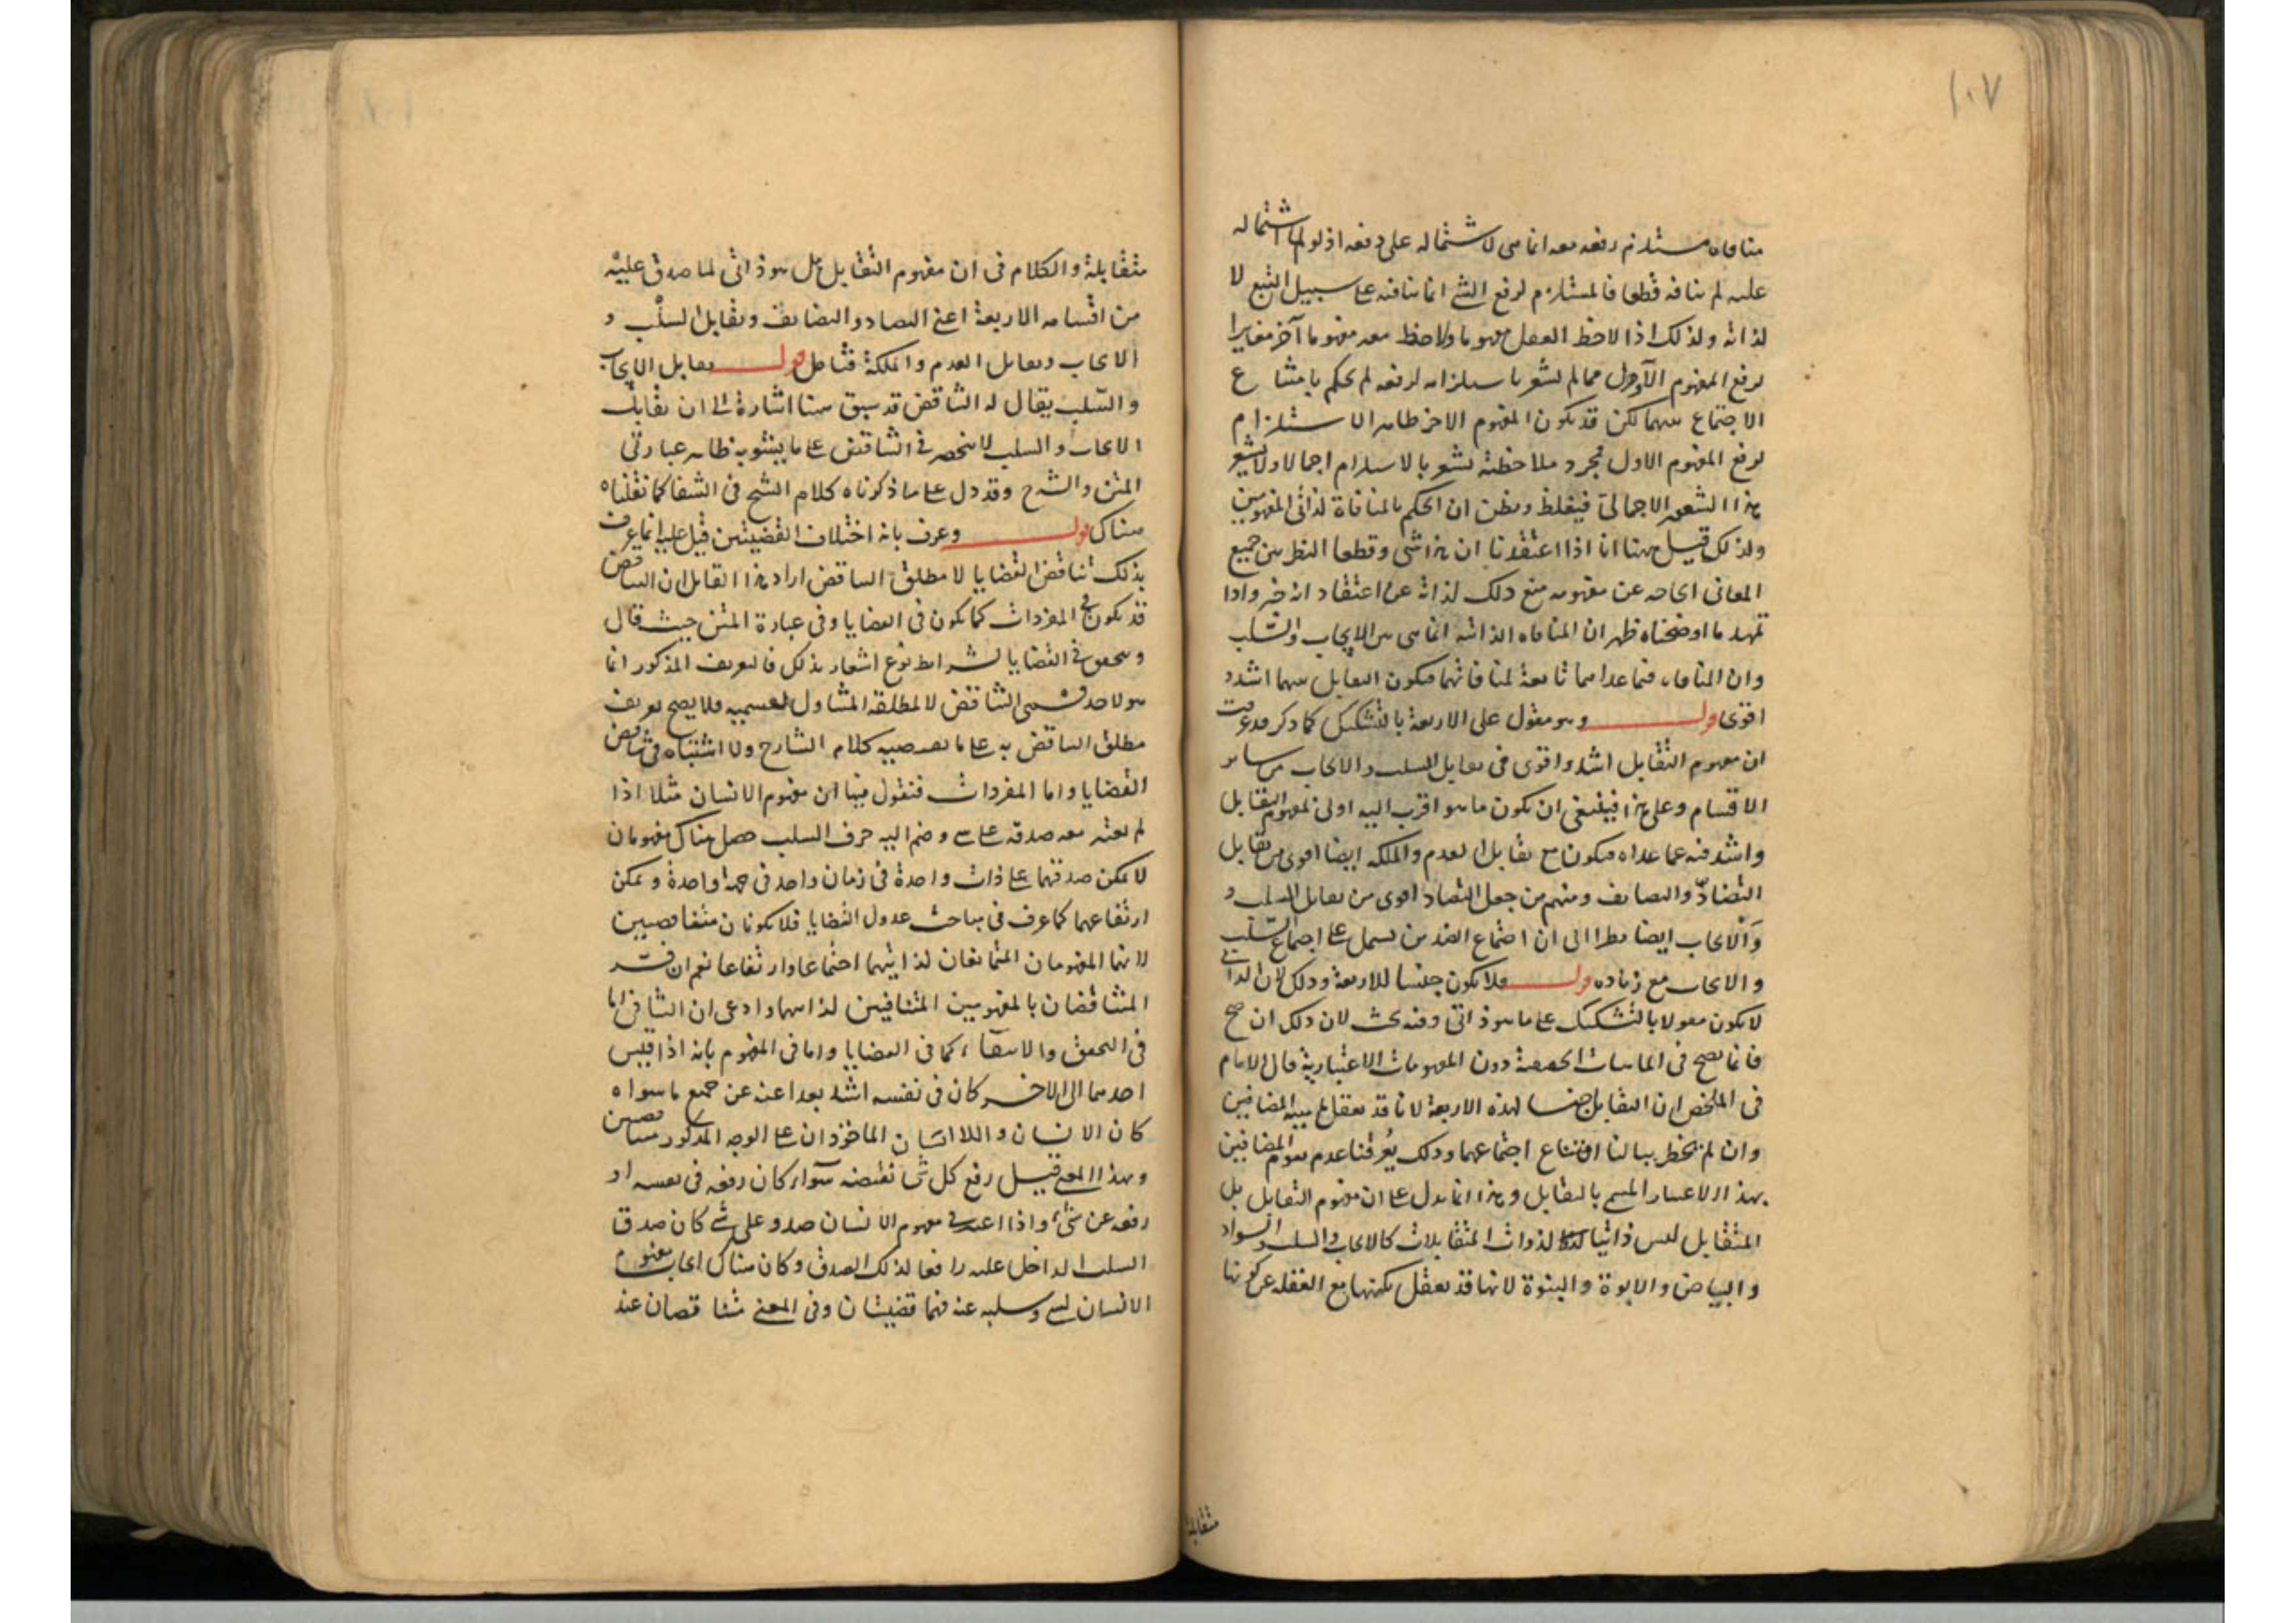 ١٠٧
منافاة مستلزم رفعه معه انما هى لاشتماله على رفعه اذ لولا اشتماله
عليه لم ينافه قطعا فالمستلزم لرفع الشئ انما ينافيه على سبيل التبع لا
لذاته ولذلك اذا لاحظ العقل مفهوما ولاحظ معه مفهوما آخر مغايرا
لرفع المفهوم الاول مما لم يشعر باستلزامه لرفعه لم يحكم بامتناع
الاجتماع بينهما لكن قد يكون المفهوم الاخر ظاهر الاستلزام
لرفع المفهوم الاول فبمجرد ملاحظته يشعر بالاستلزام اجمالا ولا يشعر
بهذا الشعور الاجمالى فيغلظ ويظن ان الحكم بالمنافاة لذاتى المفهومين
ولذلك قيل ههنا انا اذا اعتقدنا ان هذا شى وقطعنا النظر عن جميع
المعانى الخارجه عن مفهومه منع ذلك لذاته عن اعتقاد انه خير واذا
تمهد ما اوضحناه ظهر ان المنافاه الذاتيه انما هى بين الايجاب والسلب
وان المنافاه فيما عداهما تابعة لمنافاتهما فيكون التقابل بينهما اشد و
اقوى قولـــه وهو مقول على الاربعة بالتشكيك كما ذكر قد عرفت
ان مفهوم التقابل اشد واقوى فى تقابل السلب والايجاب من سائر
الاقسام وعلى هذا فينبغى ان يكون ما هو اقرب اليه اولى بمفهوم التقابل
واشد فيه عما عداه فيكون مع تقابل العدم والملكه ايضا اقوى من تقابل
التضادّ والتضايف ومنهم من جعل التضاد اقوى من تقابل السلب و
والايجاب ايضا نظرا الى ان اجتماع الضدين يشتمل على اجتماع السلب
والايجاب مع زياده قولـــه فلا يكون جنسا للاربعة وذلك لان الذاتى
لا يكون مقولا بالتشكيك على ما هو ذاتى وفيه بحث لان ذلك ان صح
فانما يصح فى الماهيات الحقيقية دون المفهومات الاعتبارية قال الامام
فى الملخص ان التقابل جنسا لهذه الاربعة لانا قد نعقل المضافين
وان لم يخطر ببالنا امتناع اجتماعهما وذلك يُعرفنا عدم تقوم المضافين
بهذا الاعتبار المسمى بالتقابل وهذا انما يدل على ان مفهوم التقابل بل
المتقابل ليس ذاتيا لذوات المتقابلات كالايجاب والسلب والسواد
والبياض والابوة والبنوة لانها قد تعقل بكنهها مع الغفله عن كونها
متقابلة
متقابلة والكلام فى ان مفهوم التقابل هل هو ذاتى لما صدق عليه
من اقسامه الاربعة اعنى التضاد والتضايف وتقابل السلب و
الايجاب وتقابل العدم والملكة فتأمل قولـــه تقابل الايجاب
والسّلب يقال له التناقض قد سبق منا اشارة الى ان تقابل
الايجاب والسلب لا ينحصر فى التناقض على ما ينبئ به ظاهر عبارتى
المتن والشرح وقد دل على ما ذكرناه كلام الشيخ فى الشفا كما نقلناه
هناك قولـــه وعرف بانه اختلاف القضيتين قيل عليه انما عرف
بذلك تناقض القضايا لا مطلق التناقض اراد هذا القائل ان التناقض
قد يكون فى المفردات كما يكون فى القضايا وفى عبارة المتن حيث قال
ويتحقق فى القضايا بشرائط نوع اشعار بذلك فالتعريف المذكور انما
هو لاحد قسمى التناقض لا لمطلقه المتناول لقسميه فلا يصح تعريف
مطلق التناقض به على ما يقتضيه كلام الشارح ولا اشتباه فى تناقض
القضايا واما المفردات فنقول فيها ان مفهوم الانسان مثلا اذا
لم يعتبر معه صدقه على شئ وضم اليه حرف السلب حصل هناك مفهومان
لا يمكن صدقهما على ذات واحدة فى زمان واحد فى جهة واحدة ويمكن
ارتفاعهما كما عرف فى مباحث عدول القضايا فلا يكونان متناقضين
لانهما المفهومان المتمانعان لذاتيهما اجتماعا وارتفاعا نعم ان فسّر
المتناقضان بالمفهومين المتنافيين لذاتيهما وادعى ان التنافى اما
فى التحقق والانتفاء كما فى القضايا واما فى المفهوم بانه اذا قيس
احدهما الى الاخر كان فى نفسه اشد بعدا عنه عن جميع ما سواه
كان الانسان واللاانسان الماخوذان على الوجه المذكور متناقضين
وبهذا المعنى قيل رفع كل شئ نقيضه سواء كان رفعه فى نفسه او
رفعه عن شئ واذا اعتبر مفهوم الانسان صدقه على شئ كان صدقا
السلب الداخل عليه رافعا لذلك الصدق وكان هناك ايجاب مفهوم
الانسان لشئ وسلبه عنه فهما قضيتان وفى المعنى متناقضان عند